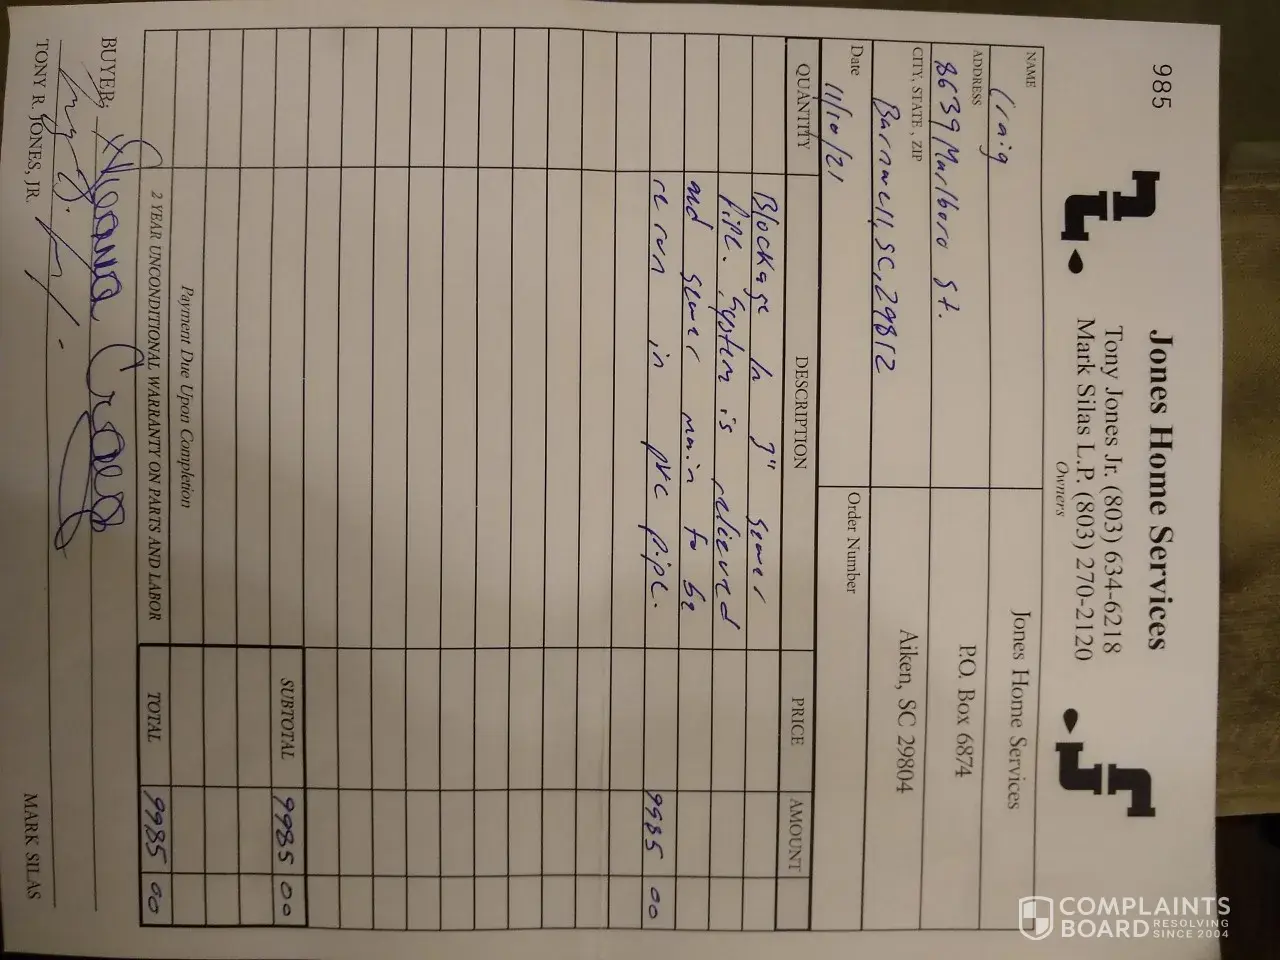 985
Jones Home Services
Tony Jones Jr. (803) 634-6218
Mark Silas L.P. (803) 270-2120
Owners
NAME
Craig
Jones Home Services
ADDRESS
8639 Marlboro St.
P.O. Box 6874
CITY, STATE, ZIP
Barnwell, SC, 29812
Aiken, SC 29804
Date
11/10/21
Order Number
QUANTITY DESCRIPTION PRICE AMOUNT
Blockage In 3" sewer
pipe. System is relieved
and sewer main to be
re run in pvc pipe. 9985 00
SUBTOTAL 9985 00
Payment Due Upon Completion
2 YEAR UNCONDITIONAL WARRANTY ON PARTS AND LABOR TOTAL 9985 00
BUYER: Craig
TONY R. JONES, JR. MARK SILAS
COMPLAINTS
BOARD RESOLVING
SINCE 2004